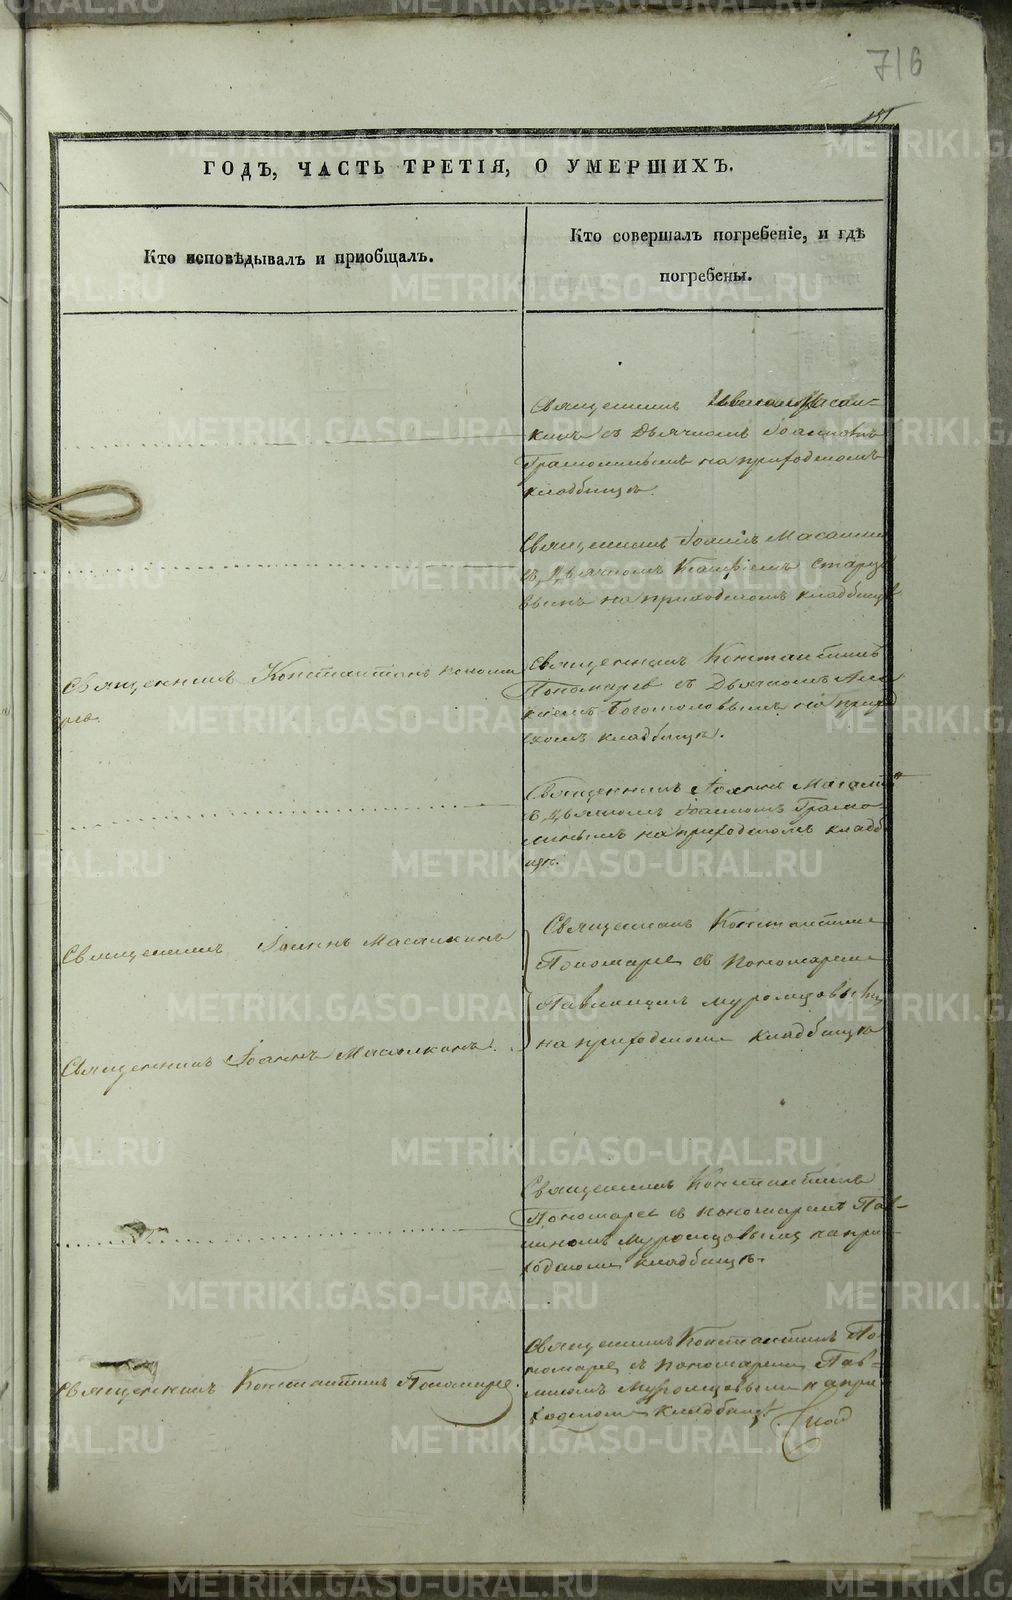 716
ГОДЪ, ЧАСТЬ ТРЕТІЯ, О УМЕРШИХЪ.
Кто исповѣдывалъ и пріобщалъ.
Кто совершалъ погребеніе, и гдѣ
погребены.
Священникъ
кинъ съ Дьячкомъ Іоанномъ
на приходскомъ
кладбищѣ.
Священникъ Іоаннъ
съ Дьячкомъ
на приходскомъ кладбищѣ
Священникъ Константинъ Понома
ревъ
Священникъ Константинъ
Пономаревъ съ Дьячкомъ Але
ксіемъ Богомоловымъ на приход
скомъ кладбищѣ.
Священникъ Іоаннъ
съ Дьячкомъ Іоанномъ
на приходскомъ кладб
ищѣ.
Священникъ Іоаннъ Масалкинъ
Священникъ Іоаннъ Масалкинъ.
Священникъ Константинъ
Пономаревъ съ пономаремъ
Павлиномъ Муромцовымъ
на приходскомъ кладбищѣ
Священникъ Константинъ
Пономаревъ съ пономаремъ Пав-
линомъ Муромцовымъ на при-
ходскомъ кладбищѣ.
Священникъ Константинъ Пономаревъ.
Священникъ Константинъ По
номаревъ съ пономаремъ Пав-
линомъ Муромцовымъ на при
ходскомъ кладбищѣ
METRIKI.GASO-URAL.RU